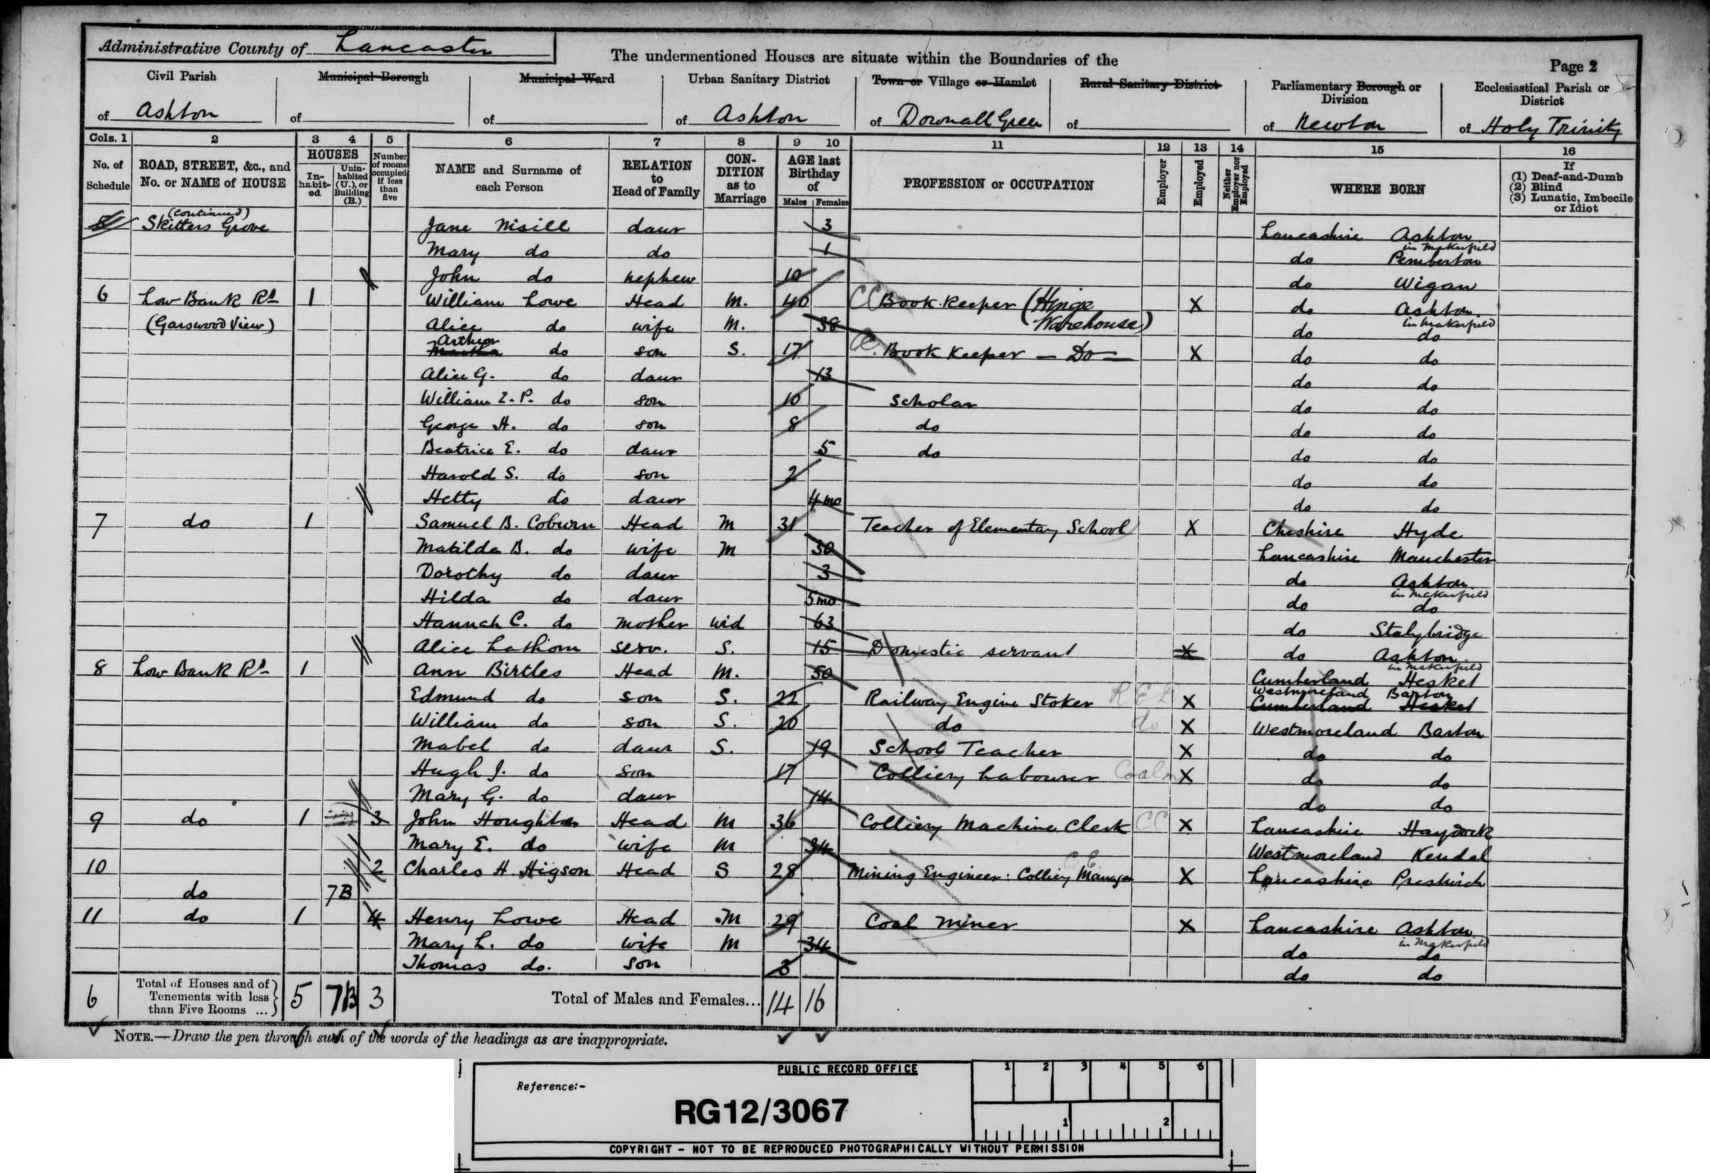 Administrative County of Lancaster
The undermentioned Houses are situate within the Boundaries of the
Page 2
Civil Parish of Ashton
Municipal Borough of
Municipal Ward of
Urban Sanitary District of Ashton
Town or Village or Hamlet of Downall Green
Rural Sanitary District of
Parliamentary Borough or Division of Newton
Ecclesiastical Parish or District of Holy Trinity
Cols. 1 2 3 4 5 6 7 8 9 10 11 12 13 14 15 16
No. of Schedule
ROAD, STREET, &c., and No. or NAME of HOUSE
HOUSES
In-habit-ed
Unin-habited (U.), or Building (B.)
Number of rooms occupied if less than five
NAME and Surname of each Person
RELATION to Head of Family
CON-DITION as to Marriage
AGE last Birthday of
Males Females
PROFESSION or OCCUPATION
Employer
Employed
Neither Employer nor Employed
WHERE BORN
If
(1) Deaf-and-Dumb
(2) Blind
(3) Lunatic, Imbecile or Idiot
(continued)
Skitters Grove Jane Nisill daur 3 Lancashire Ashton in Makerfield
Mary do do 1 do Pemberton
John do nephew 10 do Wigan
6 Low Bank Rd 1 William Lowe Head M. 40 CC Book-keeper (Hinge Warehouse) X do Ashton in Makerfield
(Garswood View) Alice do wife M. 38 do do
Arthur do son S. 17 C. Book Keeper — Do — X do do
Alice G. do daur 13 do do
William L. P. do son 10 Scholar do do
George H. do son 8 do do do
Beatrice E. do daur 5 do do do
Harold S. do son 2 do do
Hetty do daur 4mo do do
7 do 1 Samuel B. Coburn Head M 31 Teacher of Elementary School X Cheshire Hyde
Matilda B. do wife M 30 Lancashire Manchester
Dorothy do daur 3 do Ashton in Makerfield
Hilda do daur 5mo do do
Hannah C. do mother wid 63 do Stalybridge
Alice Lathom serv. S. 15 Domestic servant X do Ashton in Makerfield
8 Low Bank Rd 1 Ann Birtles Head M. 50 Cumberland Hesket
Edmund do son S. 22 Railway Engine Stoker X Westmoreland Barton Cumberland Hesket
William do son S. 20 do do X Westmoreland Barton
Mabel do daur S. 19 School Teacher X do do
Hugh J. do son 17 Colliery Labourer Coal X do do
Mary G. do daur 14 do do
9 do 1 3 John Houghton Head M 36 Colliery Machine Clerk CC X Lancashire Haydock
Mary E. do wife M 34 Westmoreland Kendal
10 2 Charles H. Higson Head S 28 Mining Engineer: Colliery Manager X Lancashire Prestwich
do 7B
11 do 1 4 Henry Lowe Head M 29 Coal Miner X Lancashire Ashton in Makerfield
Mary L. do wife M 34 do do
Thomas do. son 3 do do
6 Total of Houses and of Tenements with less than Five Rooms ... 5 7B 3 Total of Males and Females... 14 16
NOTE.—Draw the pen through such of the words of the headings as are inappropriate.
PUBLIC RECORD OFFICE
1 2 3 4 5 6
Reference:-
RG12/3067
1 2
COPYRIGHT - NOT TO BE REPRODUCED PHOTOGRAPHICALLY WITHOUT PERMISSION